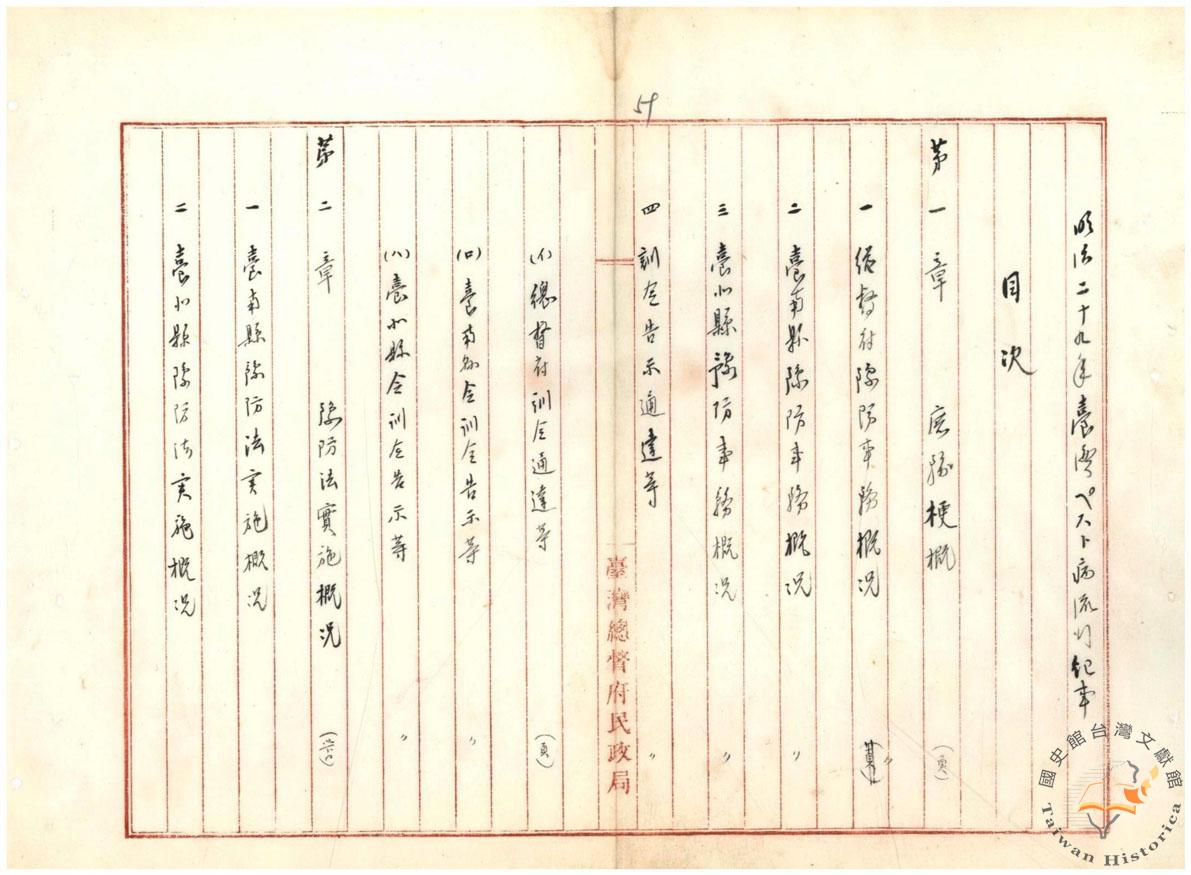 59
明治二十九年臺灣ペスト病流行紀事
目次
第一章 梗概 (頁)
一 総督府豫防事務概况 〃
二 臺南縣豫防事務概况 〃
三 臺北縣豫防事務概况 〃
四 訓令告示通達等 〃
臺灣總督府民政局
(イ) 總督府訓令通達等 (頁)
(ロ) 臺南縣令訓令告示等 〃
(ハ) 臺北縣令訓令告示等 〃
第二章 豫防法實施概况
一 臺南縣豫防法実施概况
二 臺北縣豫防法実施概况
國史館台灣文獻館
Taiwan Historica